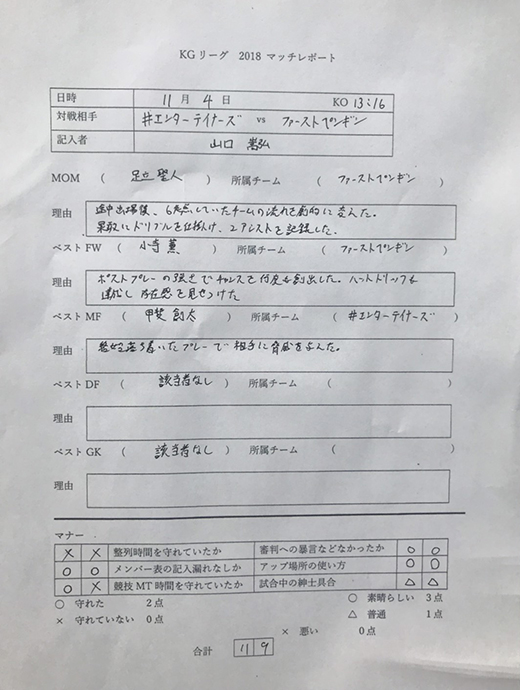 KGリーグ 2018 マッチレポート
日時 11月 4日 KO 13:16
対戦相手 #エンターテイナーズ vs ファーストペンギン
記入者 山口 嵩弘
MOM ( 足立 聖人 ) 所属チーム ( ファーストペンギン )
理由 途中出場後、6失点していたチームの流れを劇的に変えた。
果敢にドリブルを仕掛け、2アシストを記録した。
ベストFW ( 小寺 薫 ) 所属チーム ( ファーストペンギン )
理由 ポストプレーの強さでチャンスを何度も創出した。ハットトリックも
達成し存在感を見せつけた
ベストMF ( 甲斐 創太 ) 所属チーム ( #エンターテイナーズ )
理由 いたプレーで相手に脅威を与えた。
ベストDF ( 該当者なし ) 所属チーム ( )
理由
ベストGK ( 該当者なし ) 所属チーム ( )
理由
マナー
× × 整列時間を守れていたか 審判への暴言などなかったか ○ ○
○ ○ メンバー表の記入漏れなしか アップ場所の使い方 ○ ○
○ × 競技MT時間を守れていたか 試合中の紳士具合 △ △
○ 守れた 2点 ○ 素晴らしい 3点
× 守れていない 0点 △ 普通 1点
× 悪い 0点
合計 11 9